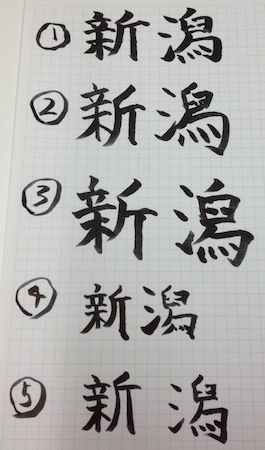 ① 新潟
② 新潟
③ 新潟
④ 新潟
⑤ 新潟